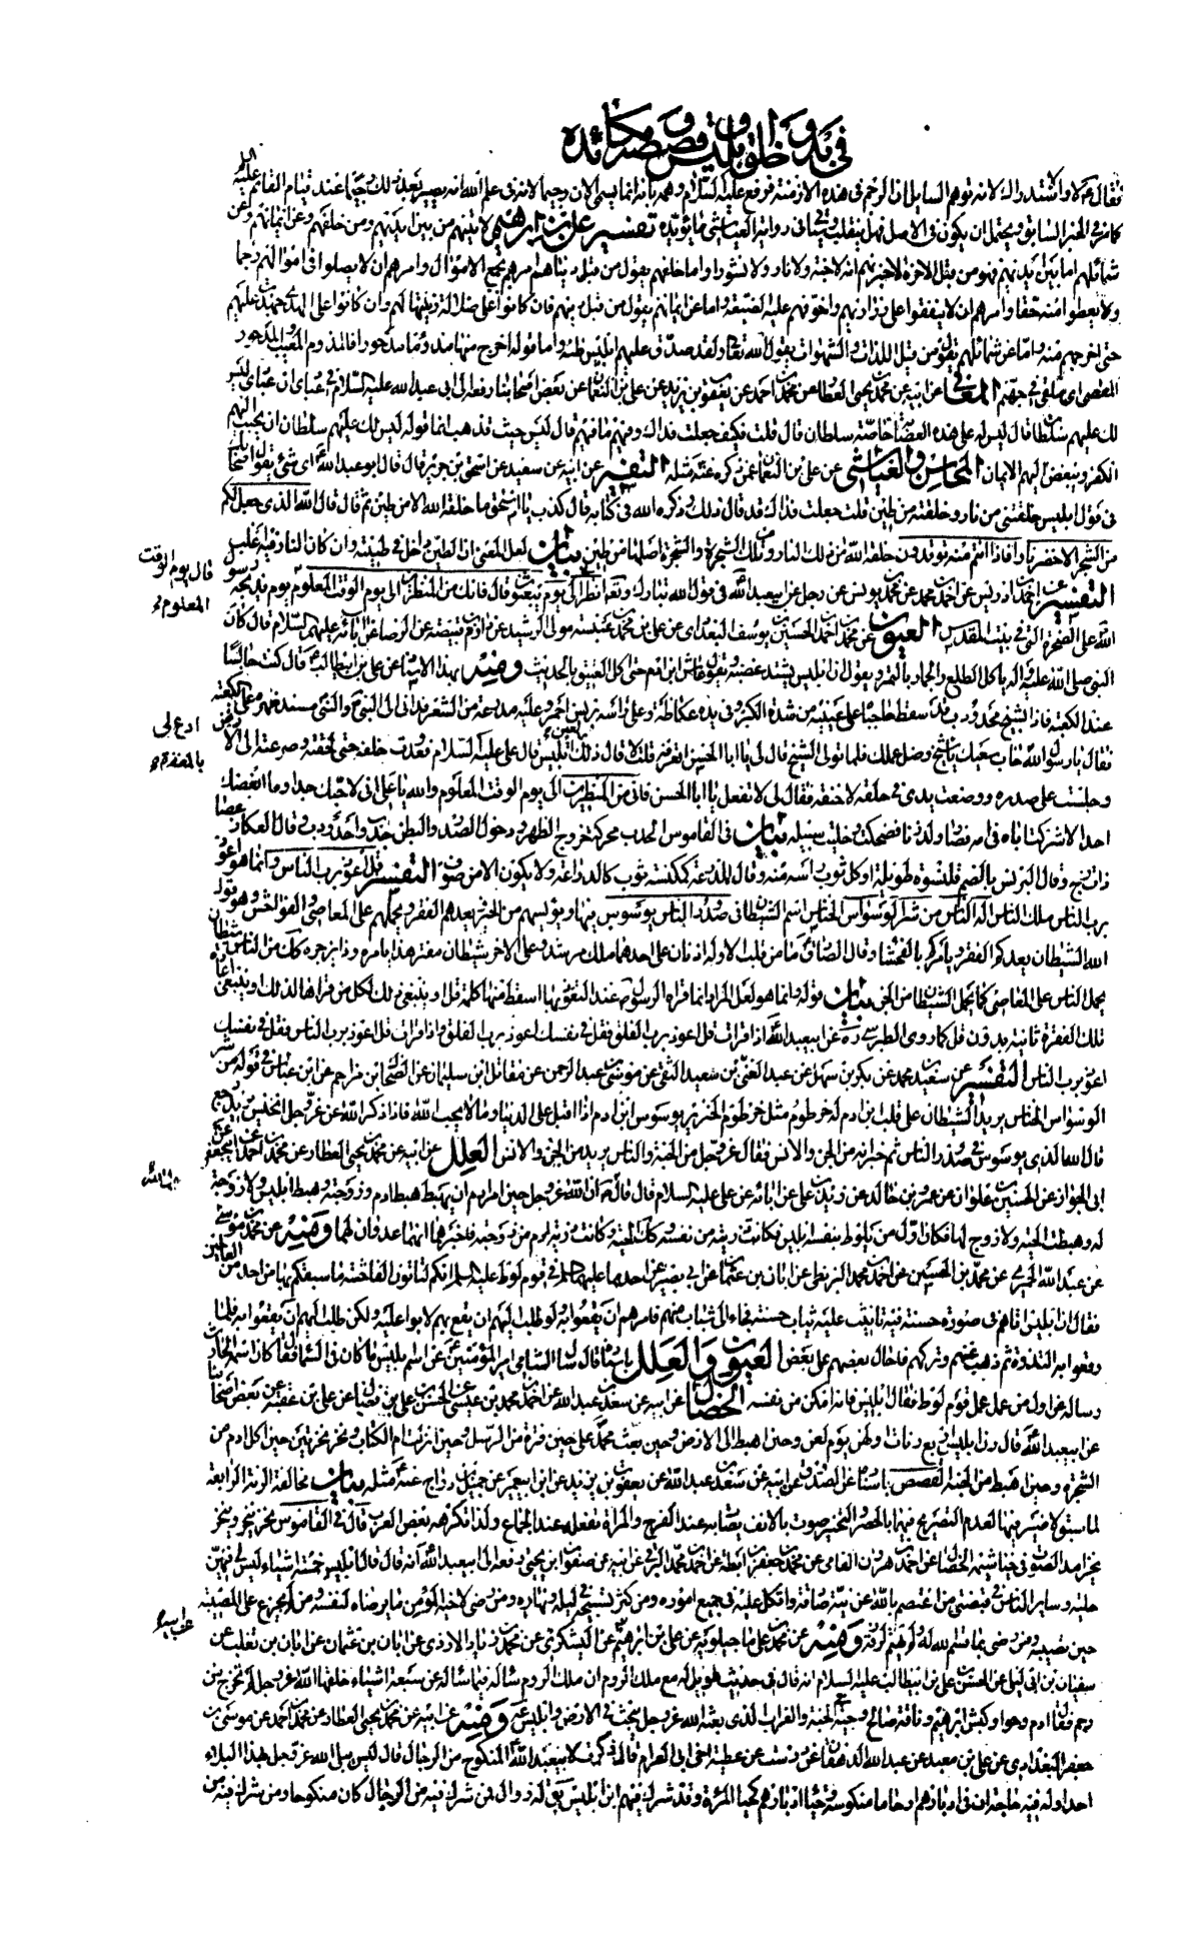 في بدو خلق ابليس وقصصه ومكائده
فقال ع لا والاستدراك لانه توهم السايل ان الرجم في هذه الازمنة فرفع عليه السلام وهمه بانه انما يسمى الان رجيما لانه في علم الله انه يصير بعد ذلك رجيما عند قيام القائم عليه السلام
كما مر في الخبر السابق ويحتمل ان يكون في الاصل فهل ينقلب وسياتي في رواية العياشي ما يؤيده تفسير علي بن ابرهيم لاتينهم من بين ايديهم ومن خلفهم وعن ايمانهم وعن
شمائلهم اما بين ايديهم فهو من قبل الاخرة لاخبرنهم انه لا جنة ولا نار ولا نشور واما خلفهم يقول من قبل دنياهم امرهم بجمع الاموال وامرهم ان لا يصلوا في اموالهم رحما
ولا يعطوا منه حقا وامرهم ان لا ينفقوا على ذراريهم واخوفهم عليهم الضيعة واما عن ايمانهم يقول من قبل دينهم فان كانوا على ضلالة زينتها لهم وان كانوا على الهدى جهدت عليهم
حتى اخرجهم منه واما عن شمائلهم يقول من قبل اللذات والشهوات يقول الله تعالى ولقد صدق عليهم ابليس ظنه واما قوله اخرج منها مذؤما مدحورا فالمذؤم المعيب والمدحور
المقصى اي ملقى في جهنم المعاني عن ابيه عن محمد بن يحيى العطار عن محمد بن احمد عن يعقوب بن يزيد عن علي بن النعمان عن بعض اصحابنا رفعه الى ابي عبد الله عليه السلام في ان عبادي ليس
لك عليهم سلطان قال ليس له على هذه العصابة خاصة سلطان قال قلت فكيف جعلت فداك وفيهم ما فيهم قال ليس حيث تذهب انما قوله ليس لك عليهم سلطان ان يحبب اليهم
الكفر ويبغض اليهم الايمان المحاسن والعياشي عن علي بن النعمان عمن ذكره عنه مثله التفسير عن ابيه عن سعيد عن اسحق بن جرير قال قال ابو عبد الله اي شيء يقول اصحابك
في قول ابليس خلقتني من نار وخلقته من طين قلت جعلت فداك قد قال ذلك وذكره الله في كتابه قال كذب يا اسحق ما خلقه الله الا من طين ثم قال قال الله الذي جعل لكم
من الشجر الاخضر نارا فاذا انتم منه توقدون خلقه الله من تلك النار ومن تلك الشجرة والشجرة اصلها من طين بيان لعل المعنى ان الطين داخل في طينته وان كان النار فيه غلب
التفسير عن احمد بن ادريس عن احمد بن محمد عن محمد بن يونس عن رجل عن ابي عبد الله في قول الله تبارك وتعالى انظرني الى يوم يبعثون قال فانك من المنظرين الى يوم الوقت المعلوم يوم يذبحه رسول
قال يوم الوقت المعلوم
الله على الصخرة التي في بيت المقدس العيون عن محمد بن احمد بن الحسين بن يوسف البغدادي عن علي بن محمد بن عنبسة مولى الرشيد عن دارم بن قبيصة عن الرضا عن ابائه عليهم السلام قال كان
النبي صلى الله عليه واله ياكل الطلع والجمار بالتمر ويقول ان ابليس يشتد غضبه ويقول عاش ابن ادم حتى اكل العتيق بالحديث ومنه بهذا الاسناد عن علي بن ابي طالب قال كنت جالسا
عند الكعبة فاذا شيخ محدودب قد سقط حاجباه على عينيه من شدة الكبر وفي يده عكازة وعلى راسه برنس احمر وعليه مدرعة من الشعر فدنى الى النبي والنبي مسند ظهره على الكعبة
ادع لي بالمغفرة
فقال يا رسول الله فقال خاب سعيك يا شيخ وضل عملك فلما تولى الشيخ قال لي يا ابا الحسن اتعرفه قلت لا قال ذلك اللعين ابليس قال علي عليه السلام فعدوت خلفه حتى لحقته وصرعته الى الارض
وجلست على صدره ووضعت يدي في حلقه لاخنقه فقال لي لا تفعل يا ابا الحسن فاني من المنظرين الى يوم الوقت المعلوم والله يا علي اني لاحبك جدا وما ابغضك
احد الا شركت اباه في امه فصار ولد زنا فضحكت وخليت سبيله بيان في القاموس الحدب محركة خروج الظهر ودخول الصدر والبطن حدب واحدودب وقال العكاز عصا
ذات زج وقال البرنس بالضم قلنسوة طويلة او كل ثوب راسه منه وقال المدرعة كمكنسة ثوب كالدراعة ولا يكون الا من صوف التفسير قل اعوذ برب الناس وانما هو اعوذ
برب الناس ملك الناس اله الناس من شر الوسواس الخناس اسم الشيطان في صدور الناس يوسوس فيها ويؤيسهم من الخير ويعدهم الفقر ويحملهم على المعاصي والفواحش وهو قول
الله الشيطان يعدكم الفقر ويامركم بالفحشاء وقال الصادق ما من قلب الا وله اذنان على احدهما ملك مرشد وعلى الاخر شيطان مفتر هذا يامره وذا يزجره كذلك من الناس شيطان
يحمل الناس على المعاصي كما يحمل الشيطان من الجن بيان قوله وانما هو لعل المراد انما قراه الرسول ص عند التعوذ بها اسقط منها كلمة قل او ينبغي ذلك لكل من قراها لذلك او ينبغي اعادة
تلك الفقرة ثانية بدون قل كما روى الطبرسي ره عن ابي عبد الله اذا قرات قل اعوذ برب الفلق فقل في نفسك اعوذ برب الفلق واذا قرات قل اعوذ برب الناس فقل في نفسك
اعوذ برب الناس التفسير عن سعيد بن محمد عن بكر بن سهل عن عبد الغني بن سعيد الثقفي عن موسى بن عبد الرحمن عن مقاتل بن سليمان عن الضحاك بن مزاحم عن ابن عباس في قوله من شر
الوسواس الخناس يريد الشيطان على قلب ابن ادم له خرطوم مثل خرطوم الخنزير يوسوس ابن ادم اذا اقبل على الدنيا وما لا يحب الله فاذا ذكر الله عز وجل انخنس يريد رجع
قال الله الذي يوسوس في صدور الناس ثم اخبر انه من الجن والانس فقال عز وجل من الجنة والناس يريد من الجن والانس العلل عن ابيه عن محمد بن يحيى العطار عن محمد بن احمد عن ابي جعفر عن
ابي الجوزاء عن الحسين بن علوان عن عمرو بن خالد عن زيد بن علي عن ابائه عن علي عليه السلام قال قال ان الله عز وجل حين امر ادم ان يهبط هبط ادم وزوجته وهبط ابليس ولا زوجة
له وهبطت الحية ولا زوج لها فكان اول من يلوط بنفسه ابليس فكانت ذريته من نفسه وكذلك الحية وكانت ذرية ادم من زوجته فاخبرهما انهما عدوان لهما ومنه عن محمد بن موسى
عن عبد الله الحميري عن محمد بن الحسين عن احمد بن محمد البزنطي عن ابان بن عثمان عن ابي بصير عن احدهما عليهما السلام في قوم لوط عليه السلم انكم لتاتون الفاحشة ما سبقكم بها من احد من العالمين
فقال ان ابليس اتاهم في صورة حسنة فيه تانيث عليه ثياب حسنة فجاء الى شباب منهم فامرهم ان يقعوا به ولو طلب اليهم ان يقع بهم لابوا عليه ولكن طلب اليهم ان يقعوا به فلما
وقعوا به التذوه ثم ذهب عنهم وتركهم فاحال بعضهم على بعض العيون والعلل باسناده قال سال الشامي امير المؤمنين عن اسم ابليس ما كان في السماء فقال كان اسمه الحارث
رساله عن اول من عمل عمل قوم لوط فقال ابليس فانه امكن من نفسه الخصال عن ابيه عن سعد بن عبد الله عن احمد بن محمد بن عيسى عن الحسن بن علي عن علي بن عقبة عن بعض اصحابنا
عن ابي عبد الله قال رن ابليس اربع رنات اولهن يوم لعن وحين اهبط الى الارض وحين بعث محمد على حين فترة من الرسل وحين انزلت ام الكتاب ونخر نخرتين حين اكل ادم من
الشجرة وحين اهبط من الجنة القصص باسناده عن الصدوق عن ابيه عن سعد بن عبد الله عن يعقوب بن يزيد عن ابن ابي عمير عن جميل بن دراج عنه مثله بيان مخالفة الرنة الرابعة
لما سبق لا ضير فيها لعدم التصريح فيها بالحصر والنخير صوت بالانف يصابه عند الفرح والمراة تفعله عند الجماع ولذا تكرهه بعض العرب قال في القاموس نخر ينخر وينخر
نخيرا مد الصوت في خياشيمه الخصال عن احمد بن هرون الفامي عن محمد بن جعفر بن بطة عن احمد بن محمد البرقي عن ابيه عن صفوان بن يحيى رفعه الى ابي عبد الله انه قال قال ابليس خمسة اشياء ليس لي فيهن
حيلة وساير الناس في قبضتي من اعتصم بالله عن نية صادقة واتكل عليه في جميع اموره ومن كثر تسبيحه في ليله ونهاره ومن رضي لاخيه المؤمن ما يرضاه لنفسه ومن لم يجزع على المصيبة
حين تصيبه ومن رضي بما قسم الله له ولم يهتم لرزقه ومنه عن محمد بن علي ماجيلويه عن علي بن ابرهيم عن اليشكري عن محمد بن زياد الازدي عن ابان بن عثمان عن ابان بن تغلب عن
سفيان بن ابي ليلى عن الحسن بن علي بن ابي طالب عليه السلام انه قال في حديث طويل له مع ملك الروم ان ملك الروم ساله فيما ساله عن سبعة اشياء خلقها الله عز وجل لم تخرج من
رحم فقال ادم وحوا وكبش ابرهيم وناقة صالح وحية الجنة والغراب الذي بعثه الله عز وجل يبحث في الارض وابليس ومنه عن ابيه عن محمد بن يحيى العطار عن محمد بن احمد عن موسى بن
جعفر البغدادي عن علي بن معبد عن عبد الله الدهقان عن درست عن عطية اخي ابي العرام قال ذكرت لابي عبد الله المنكوح من الرجال قال ليس يبلي الله عز وجل بهذا البلاء
احدا وله فيه حاجة ان في ادبارهم ارحاما منكوسة وحياء ادبارهم كحياء المرئة وقد شرك فيهم ابن لابليس يقال له زوال فمن شرك فيه من الرجال كان منكوحا ومن شرك فيه من